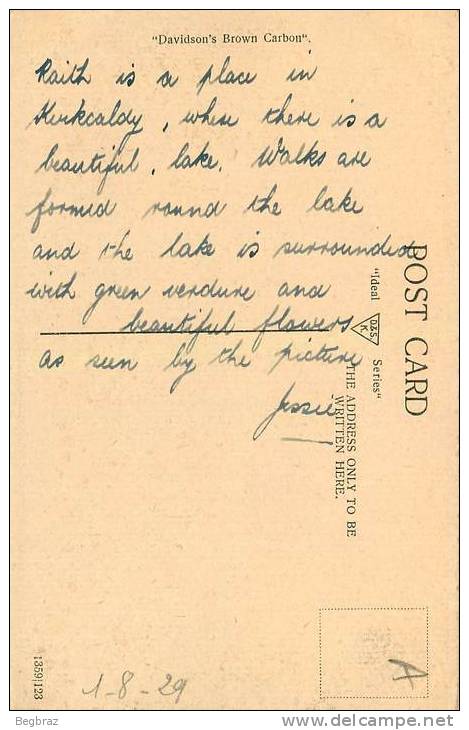 "Davidson's Brown Carbon".
Raith is a place in
Kirkcaldy, where there is a
beautiful, lake. Walks are
formed round the lake
and the lake is surrounded
with green verdure and
beautiful flowers
as seen by the picture
Jessie
POST CARD
"Ideal D&S. K. Series"
THE ADDRESS ONLY TO BE
WRITTEN HERE.
1359|123
1-8-29
A
Begbraz
www.delcampe.net